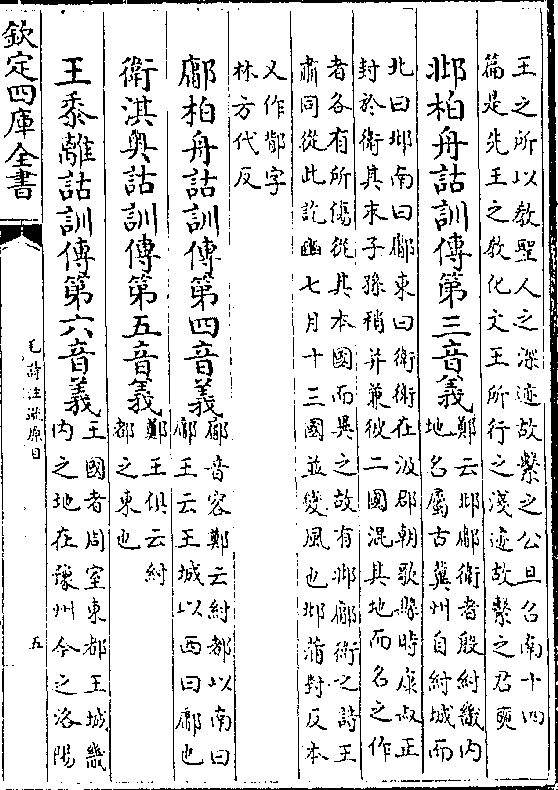 王之所以教聖人之深迹故繫之公旦召南十四
篇是先王之教化文王所行之淺迹故繫之君奭
邶柏舟詁訓傳第三音義
鄭云邶鄘衛者殷紂畿内
地名屬古冀州自紂城而
北曰邶南曰鄘東曰衛衛在汲郡朝歌縣時康叔正
封於衛其末子孫稍并兼彼二國混其地而名之作
者各有所傷從其本國而異之故有邶鄘衛之詩王
肅同從此訖豳七月十三國並變風也邶蒲對反本
又作鄁字
林方代反
鄘柏舟詁訓傳第四音義
鄘音容鄭云紂都以南曰
鄘王云王城以西曰鄘也
衛淇奥詁訓傳第五音義
鄭王俱云紂
都之東也
王黍離詁訓傳第六音義
王國者周室東都王城畿
内之地在豫州今之洛陽
欽定四庫全書
毛詩注疏原目
五